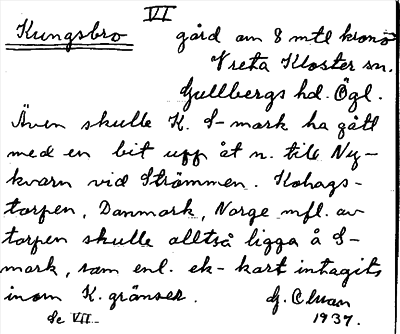 VI
Kungsbro gård om 8 mtl krono
Vreta Kloster sn.
Gullbergs hd. Ögl.
Även skulle K. S-mark ha gått
med en bit upp åt n. till Ny-
kvarn vid Strömmen. Kohags-
torpen, Danmark, Norge mfl. av
torpen skulle alltså ligga å S-
mark, som enl. ek-kart intagits
inom K. gränser.
Se VII
1937.